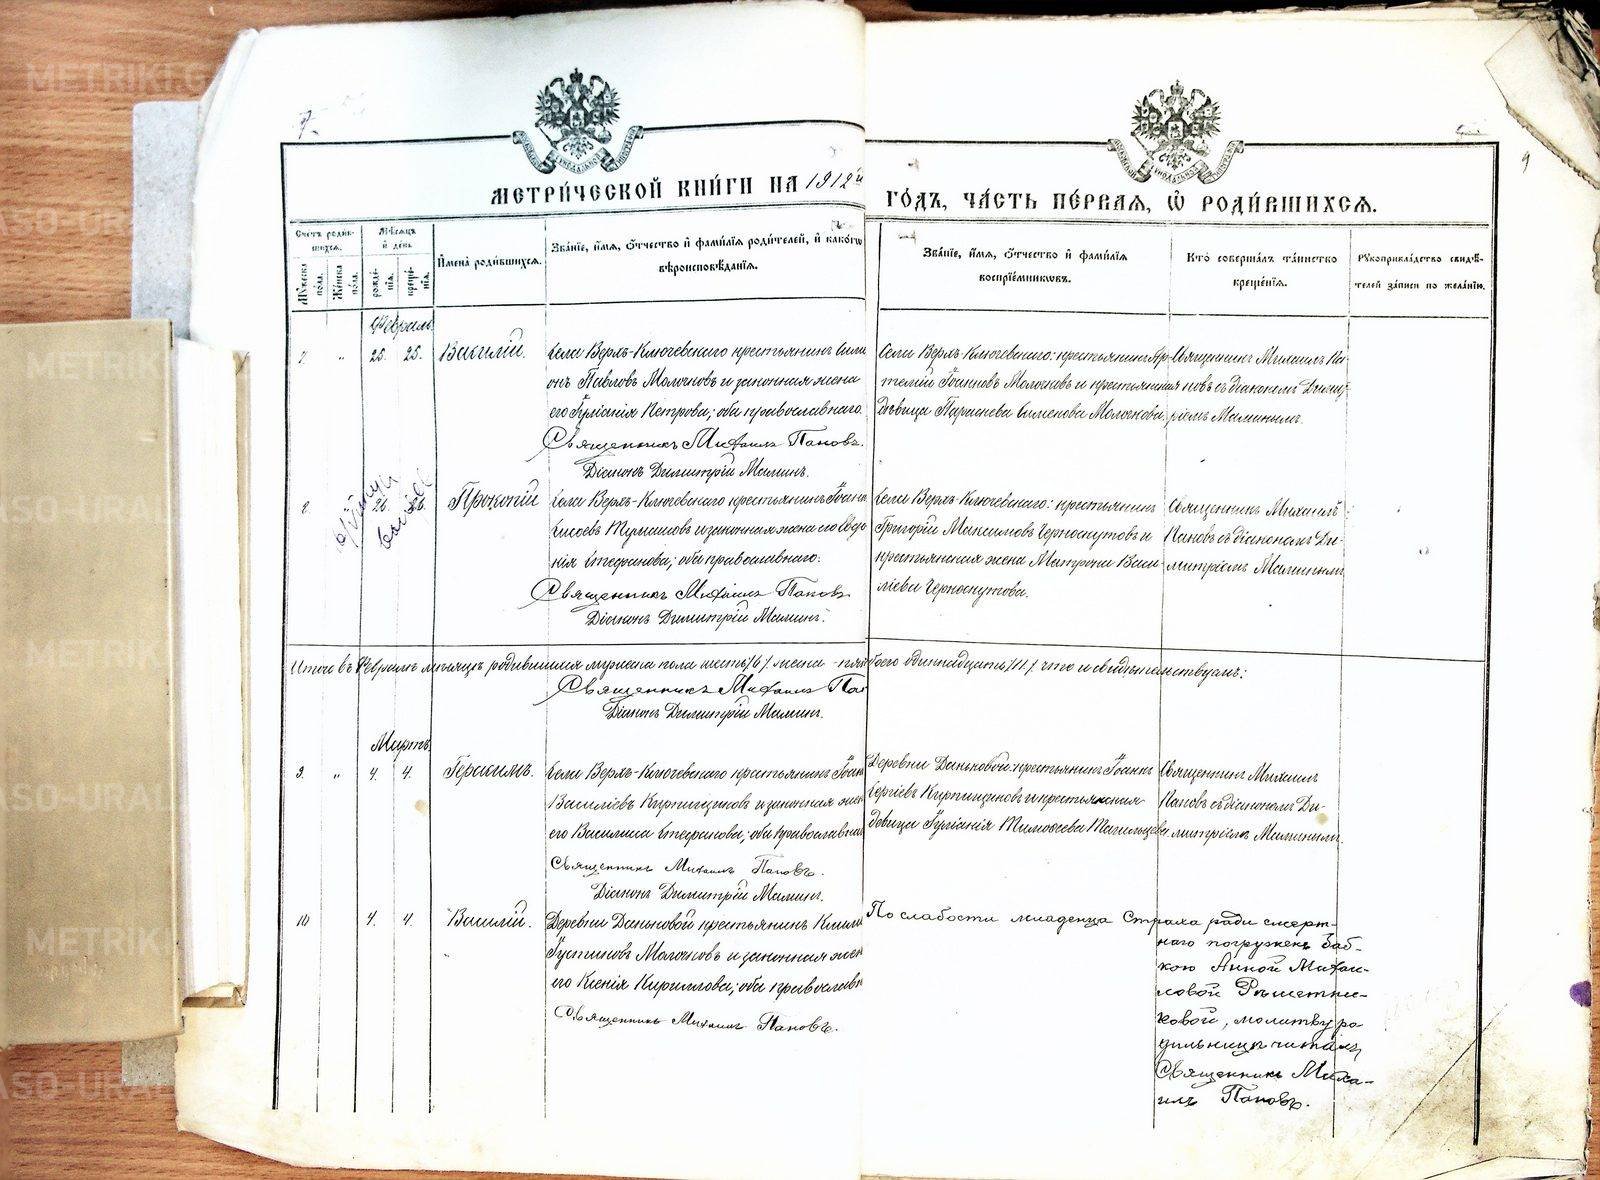 7.
9
МЕТРИ́ЧЕСКОЙ КНИ́ГИ НА 1912й
ГО́ДЪ, ЧА́СТЬ ПЕ́РВАЯ, Ѡ РОДИ́ВШИХСѦ.
Счетъ роди́вшихся.
Мѣсяцъ и день.
Мужеска пола.
Женска пола.
рожде́нія.
креще́нія.
Имена̀ роди́вшихся.
Зва́ніе, и́мя, о́тчество и фами́лія роди́телей, и како́гѡ
вѣроисповѣ́данія.
Зва́ніе, и́мя, о́тчество и фами́лія
воспріе́мниковъ.
Кто̀ соверша́лъ та́инство
креще́нія.
Рукоприкла́дство свидѣ́-
телей за́писи по жела́нію.
Февраль
7. „ 25. 25. Василій.
Села Верхъ-Ключевскаго крестьянинъ Сими
онъ Павловъ Молочковъ и законная жена
его Іуліанія Петрова; оба православнаго.
Священникъ Михаилъ Поповъ.
Діаконъ Димитрій Маминъ.
Села Верхъ-Ключевскаго: крестьянинъ Ар-
темій Іоанновъ Молочковъ и крестьянская
дѣвица Параскева Симеонова Молочкова.
Священникъ Михаилъ По-
повъ съ діакономъ Димит-
ріемъ Маминымъ.
8. 26. 26. Прокопій
Села Верхъ-Ключевскаго крестьянинъ Іоанн
и законная жена его Евдо
кія Стефанова; оба православнаго.
Священникъ Михаилъ Поповъ
Діаконъ Димитрій Маминъ.
Села Верхъ-Ключевскаго: крестьянинъ
Григорій Максимовъ Черноскутовъ и
крестьянская жена Матрона Васи-
ліева Черноскутова.
Священникъ Михаилъ
Поповъ съ діакономъ Ди-
митріемъ Маминымъ
Итого въ Февралѣ мѣсяцѣ родившихся мужеска пола шесть /6/ женска - пят обоего одиннадцать /11/ что и свидѣтельствуемъ:
Священникъ Михаилъ Поп
Діаконъ Димитрій Маминъ.
Мартъ
9. „ 4. 4. Герасимъ.
Села Верхъ-Ключевскаго крестьянинъ Іоанн
Василіевъ Кирпищиковъ и законная жен
его Василиса Стефанова; оба православна
Священникъ Михаилъ Поповъ.
Діаконъ Димитрій Маминъ.
Деревни Даньковой: крестьянинъ Іоаннъ
Сергіевъ Кирпищиковъ и крестьянская
дѣвица Іуліанія Тимоѳеева Тагильцева
Священникъ Михаилъ
Поповъ съ діакономъ Ди-
митріемъ Маминымъ.
10 4. 4. Василій.
Деревни Даньковой крестьянинъ
Іустиновъ Молочковъ и законная жен
его Ксенія Кириллова; оба православн
Священникъ Михаилъ Поповъ.
По слабости младенца страха ради смерт-
наго погруженъ баб-
кою Анной Михаи-
ловой Рѣшетни-
ковой, молитву ро-
дильницѣ читалъ
Священникъ Миха-
илъ Поповъ.
METRIKI.GA
ASO-URAL
METRIKI
ASO-URAL
METRIKI
ASO-URAL
METRIKI
ASO-URAL